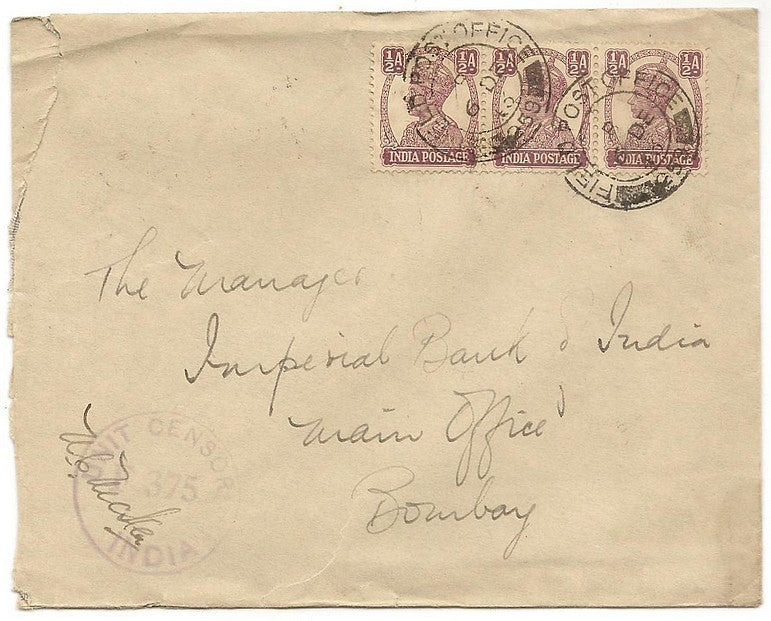 ½A ½A ½A ½A ½A ½A
INDIA POSTAGE INDIA POSTAGE INDIA POSTAGE
FIELD POST OFFICE
FIELD POST OFFICE
The Manager
Imperial Bank of India
Main Office
Bombay
UNIT CENSOR
375
INDIA